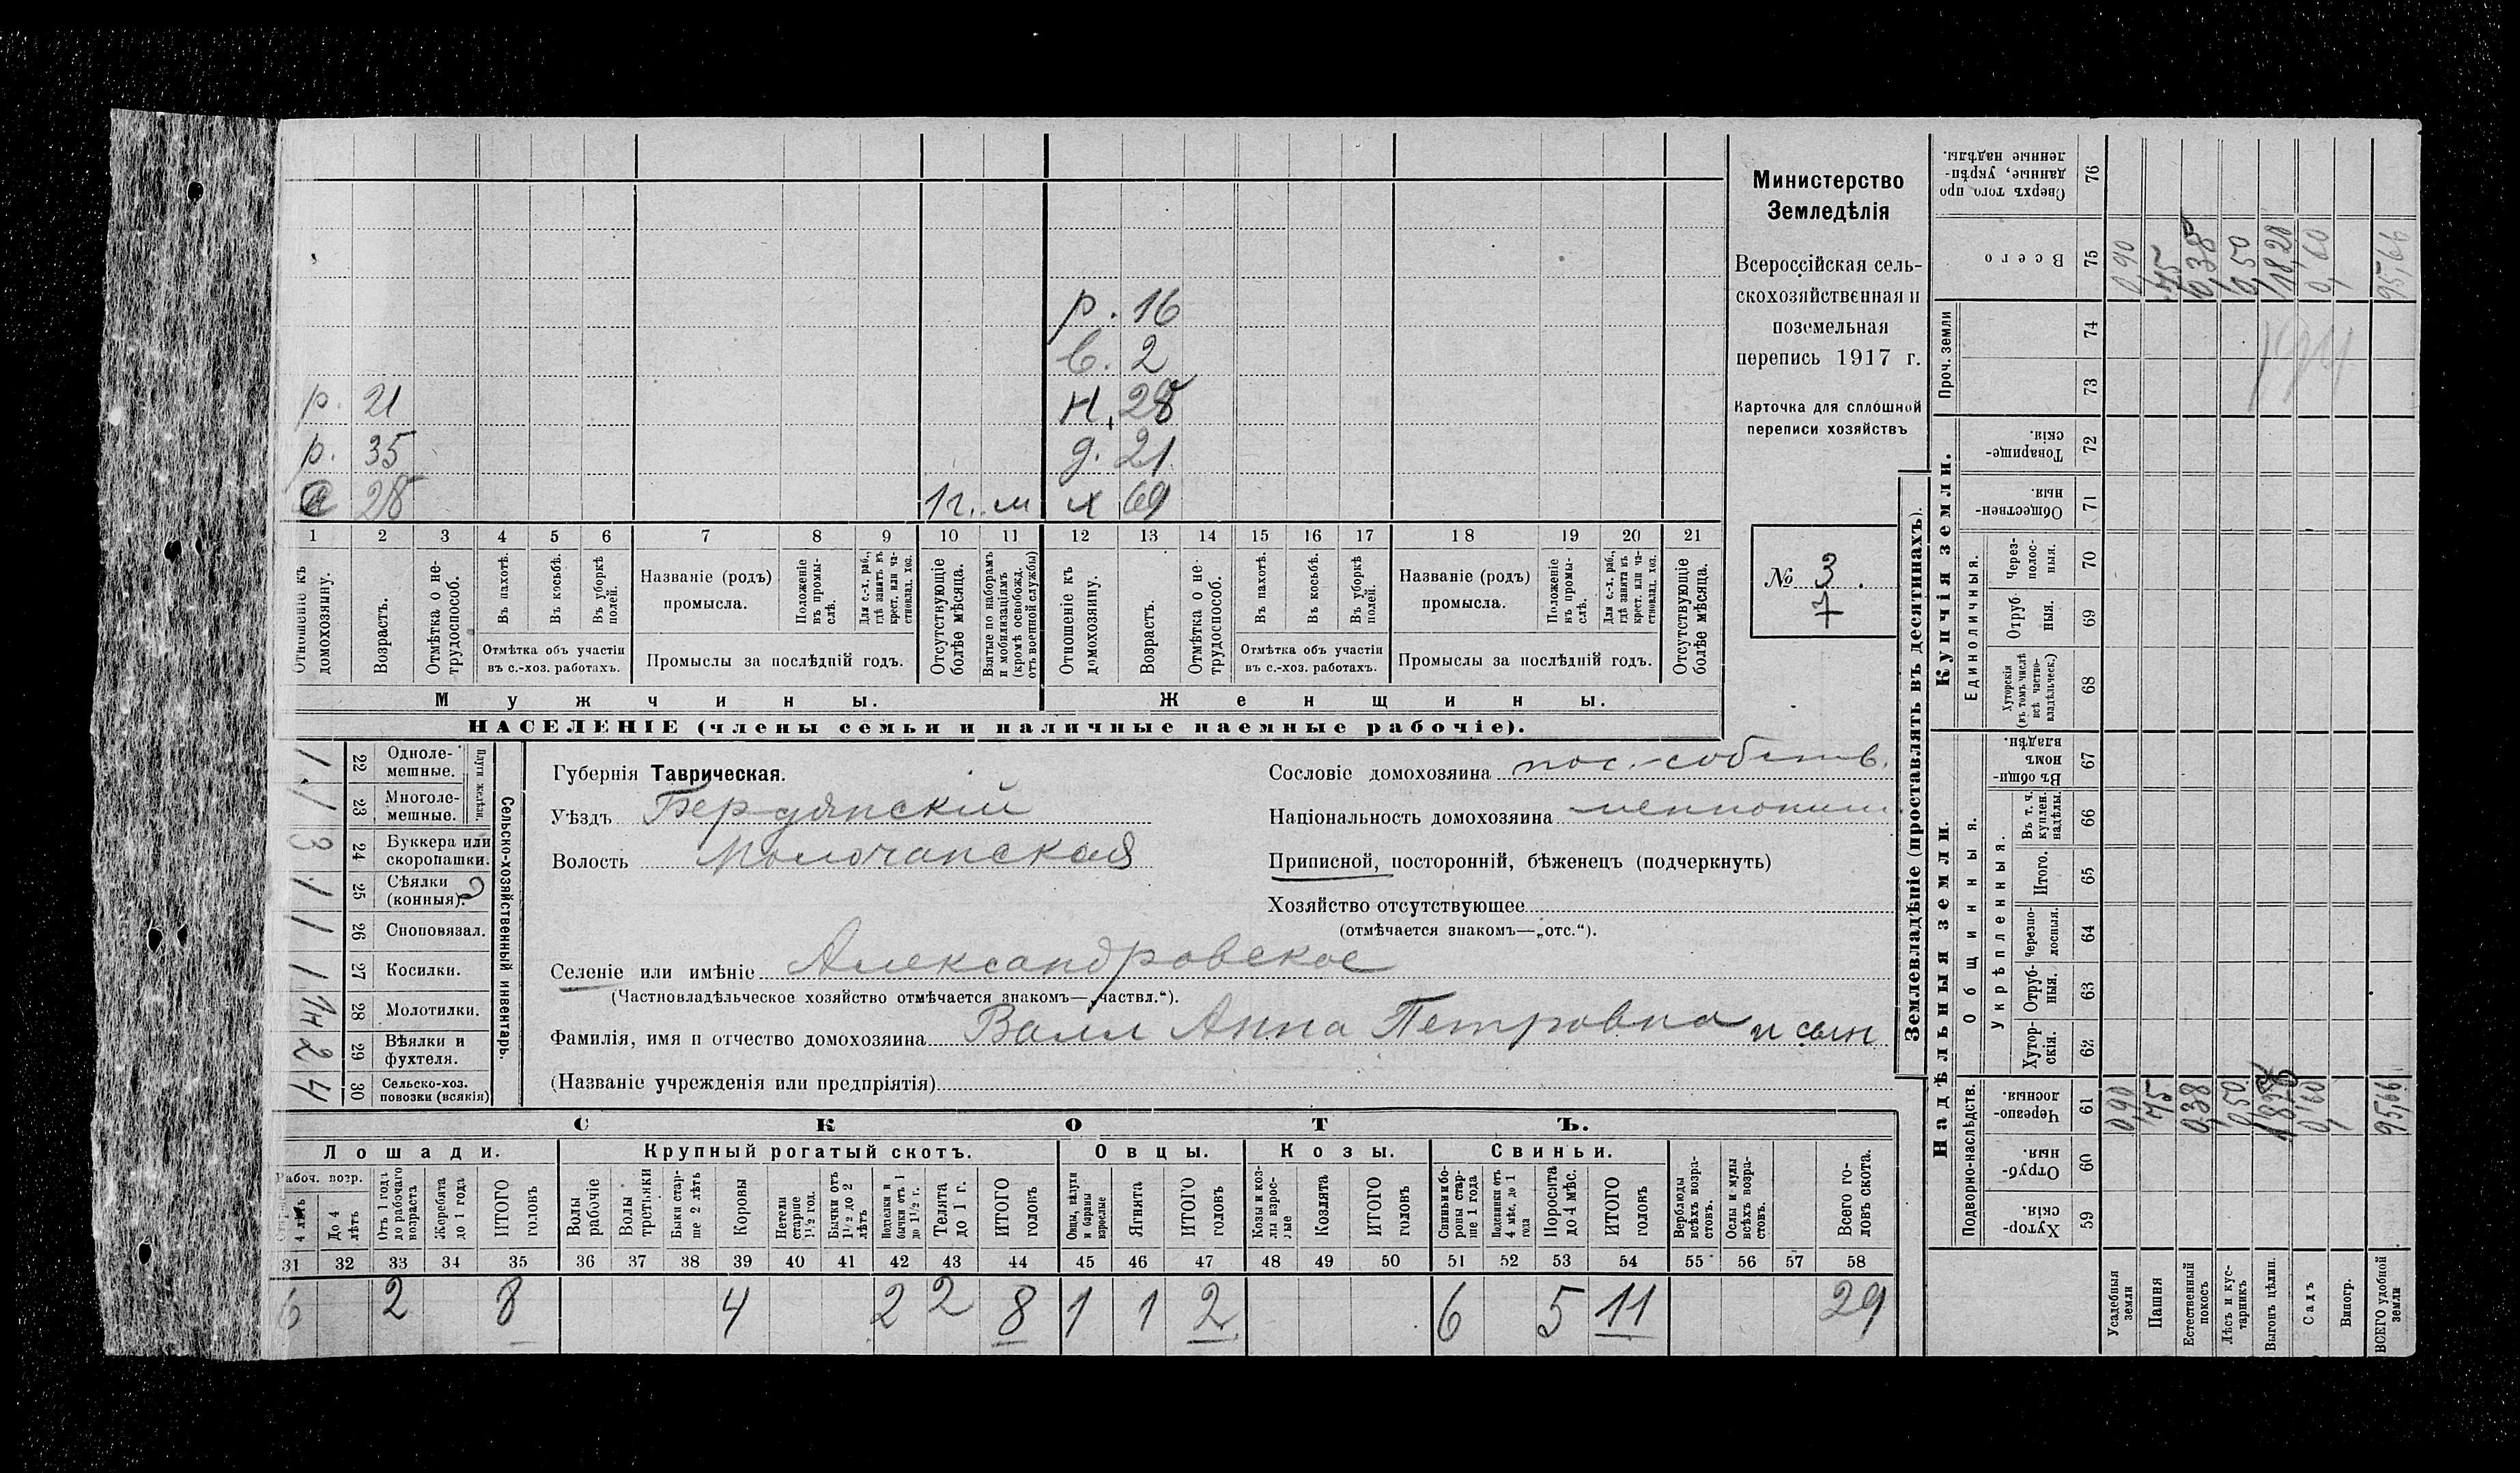 Министерство
Земледѣлія
Всероссійская сель-
скохозяйственная и
поземельная
перепись 1917 г.
Карточка для сплошной
переписи хозяйствъ
№ 3.
7
р. 16
в. 2
р. 21 н. 28
р. 35 д. 21
с 28 1 г. м х 69
1 2 3 4 5 6 7 8 9 10 11 12 13 14 15 16 17 18 19 20 21
Отношеніе къ домохозяину.
Возрастъ.
Отмѣтка о не-
трудоспособ.
Въ пахотѣ.
Въ косьбѣ.
Въ уборкѣ
полей.
Отмѣтка объ участіи
въ с.-хоз. работахъ.
Названіе (родъ)
промысла.
Положеніе
въ промы-
слѣ.
Для с.-х. раб.,
гдѣ занятъ въ
крест. или ча-
стновлад. хоз.
Промыслы за послѣдній годъ.
Отсутствующіе
болѣе мѣсяца.
Взятые по наборамъ
и мобилизаціямъ
(кромѣ освобожд.
отъ военной службы)
Отношеніе къ
домохозяину.
Возрастъ.
Отмѣтка о не-
трудоспособ.
Въ пахотѣ.
Въ косьбѣ.
Въ уборкѣ
полей.
Отмѣтка объ участіи
въ с.-хоз. работахъ.
Названіе (родъ)
промысла.
Положеніе
въ промы-
слѣ.
Для с.-х. раб.,
гдѣ занята въ
крест. или ча-
стновлад. хоз.
Промыслы за послѣдній годъ.
Отсутствующіе
болѣе мѣсяца.
Мужчины. Женщины.
НАСЕЛЕНІЕ (члены семьи и наличные наемные рабочіе).
Сельско-хозяйственный инвентарь.
Плуги желѣзн.
22 Одноле-
мешные. 1
23 Многоле-
мешные. 1
24 Буккера или
скоропашки. 3
25 Сѣялки
(конныя). 1
26 Сноповязал. 1
27 Косилки. 1
28 Молотилки.
29 Вѣялки и
фухтеля. 2
30 Сельско-хоз.
повозки (всякія) 4
Губернія Таврическая.
Уѣздъ Бердянскій
Волость Молочанская
Сословіе домохозяина пос.-собств.
Національность домохозяина меннонит
Приписной, посторонній, бѣженецъ (подчеркнуть)
Хозяйство отсутствующее
(отмѣчается знакомъ—„отс.“).
Селеніе или имѣніе Александровское
(Частновладѣльческое хозяйство отмѣчается знакомъ—„частвл.“).
Фамилія, имя и отчество домохозяина Валл Анна Петровна и сын
(Названіе учрежденія или предпріятія)
СКОТЪ.
Лошади. Крупный рогатый скотъ. Овцы. Козы. Свиньи.
Рабоч. возр.
4 лѣтъ
До 4
лѣтъ
Отъ 1 года
до рабочаго
возраста
Жеребята
до 1 года
ИТОГО
головъ
Волы
рабочіе
Волы
третьяки
Быки стар-
ше 2 лѣтъ
Коровы
Нетели
старше
1½ год.
Бычки отъ
1½ до 2
лѣтъ
Подтелки и
бычки отъ 1
до 1½ г.
Телята
до 1 г.
ИТОГО
головъ
Овцы, валухи
и бараны
взрослые
Ягнята
ИТОГО
головъ
Козы и коз-
лы взрос-
лые
Козлята
ИТОГО
головъ
Свиньи и бо-
ровы стар-
ше 1 года
Подсвинки отъ
4 мѣс. до 1
года
Поросята
до 4 мѣс.
ИТОГО
головъ
Верблюды
всѣхъ возра-
стовъ.
Ослы и мулы
всѣхъ возра-
стовъ.
Всего го-
ловъ скота.
31 32 33 34 35 36 37 38 39 40 41 42 43 44 45 46 47 48 49 50 51 52 53 54 55 56 57 58
6 2 8 4 2 2 8 1 1 2 6 5 11 29
Землевладѣніе (проставлять въ десятинахъ).
Надѣльныя земли. Купчія земли.
Подворно-наслѣдств.
Общинныя.
Укрѣпленныя.
Единоличныя.
Проч. земли
Хутор-
скія. 59
Отруб-
ныя. 60
Черезпо-
лосныя. 61
Хутор-
скія. 62
Отруб-
ныя. 63
Черезпо-
лосныя. 64
Итого. 65
Въ т. ч.
куплен.
надѣлы. 66
Въ общи-
номъ
владѣн. 67
Хуторскія
(въ томъ числѣ
всѣ частно-
владѣльческ.) 68
Отруб-
ныя. 69
Через-
полос-
ныя. 70
Обществен-
ныя. 71
Товарище-
скія. 72
73
74
Всего 75
Сверхъ того про-
данные, укрѣп-
ленные надѣлы. 76
Усадебныя
земли 0,90 0,90
Пашня 75 75
Естественный
покосъ 0,38 0,38
Лѣсъ и кус-
тарникъ 0,50 0,50
Выгонъ цѣлин. 18,20
Садъ 0,60 0,60
Виногр.
ВСЕГО удобной
земли 95,66 95,66